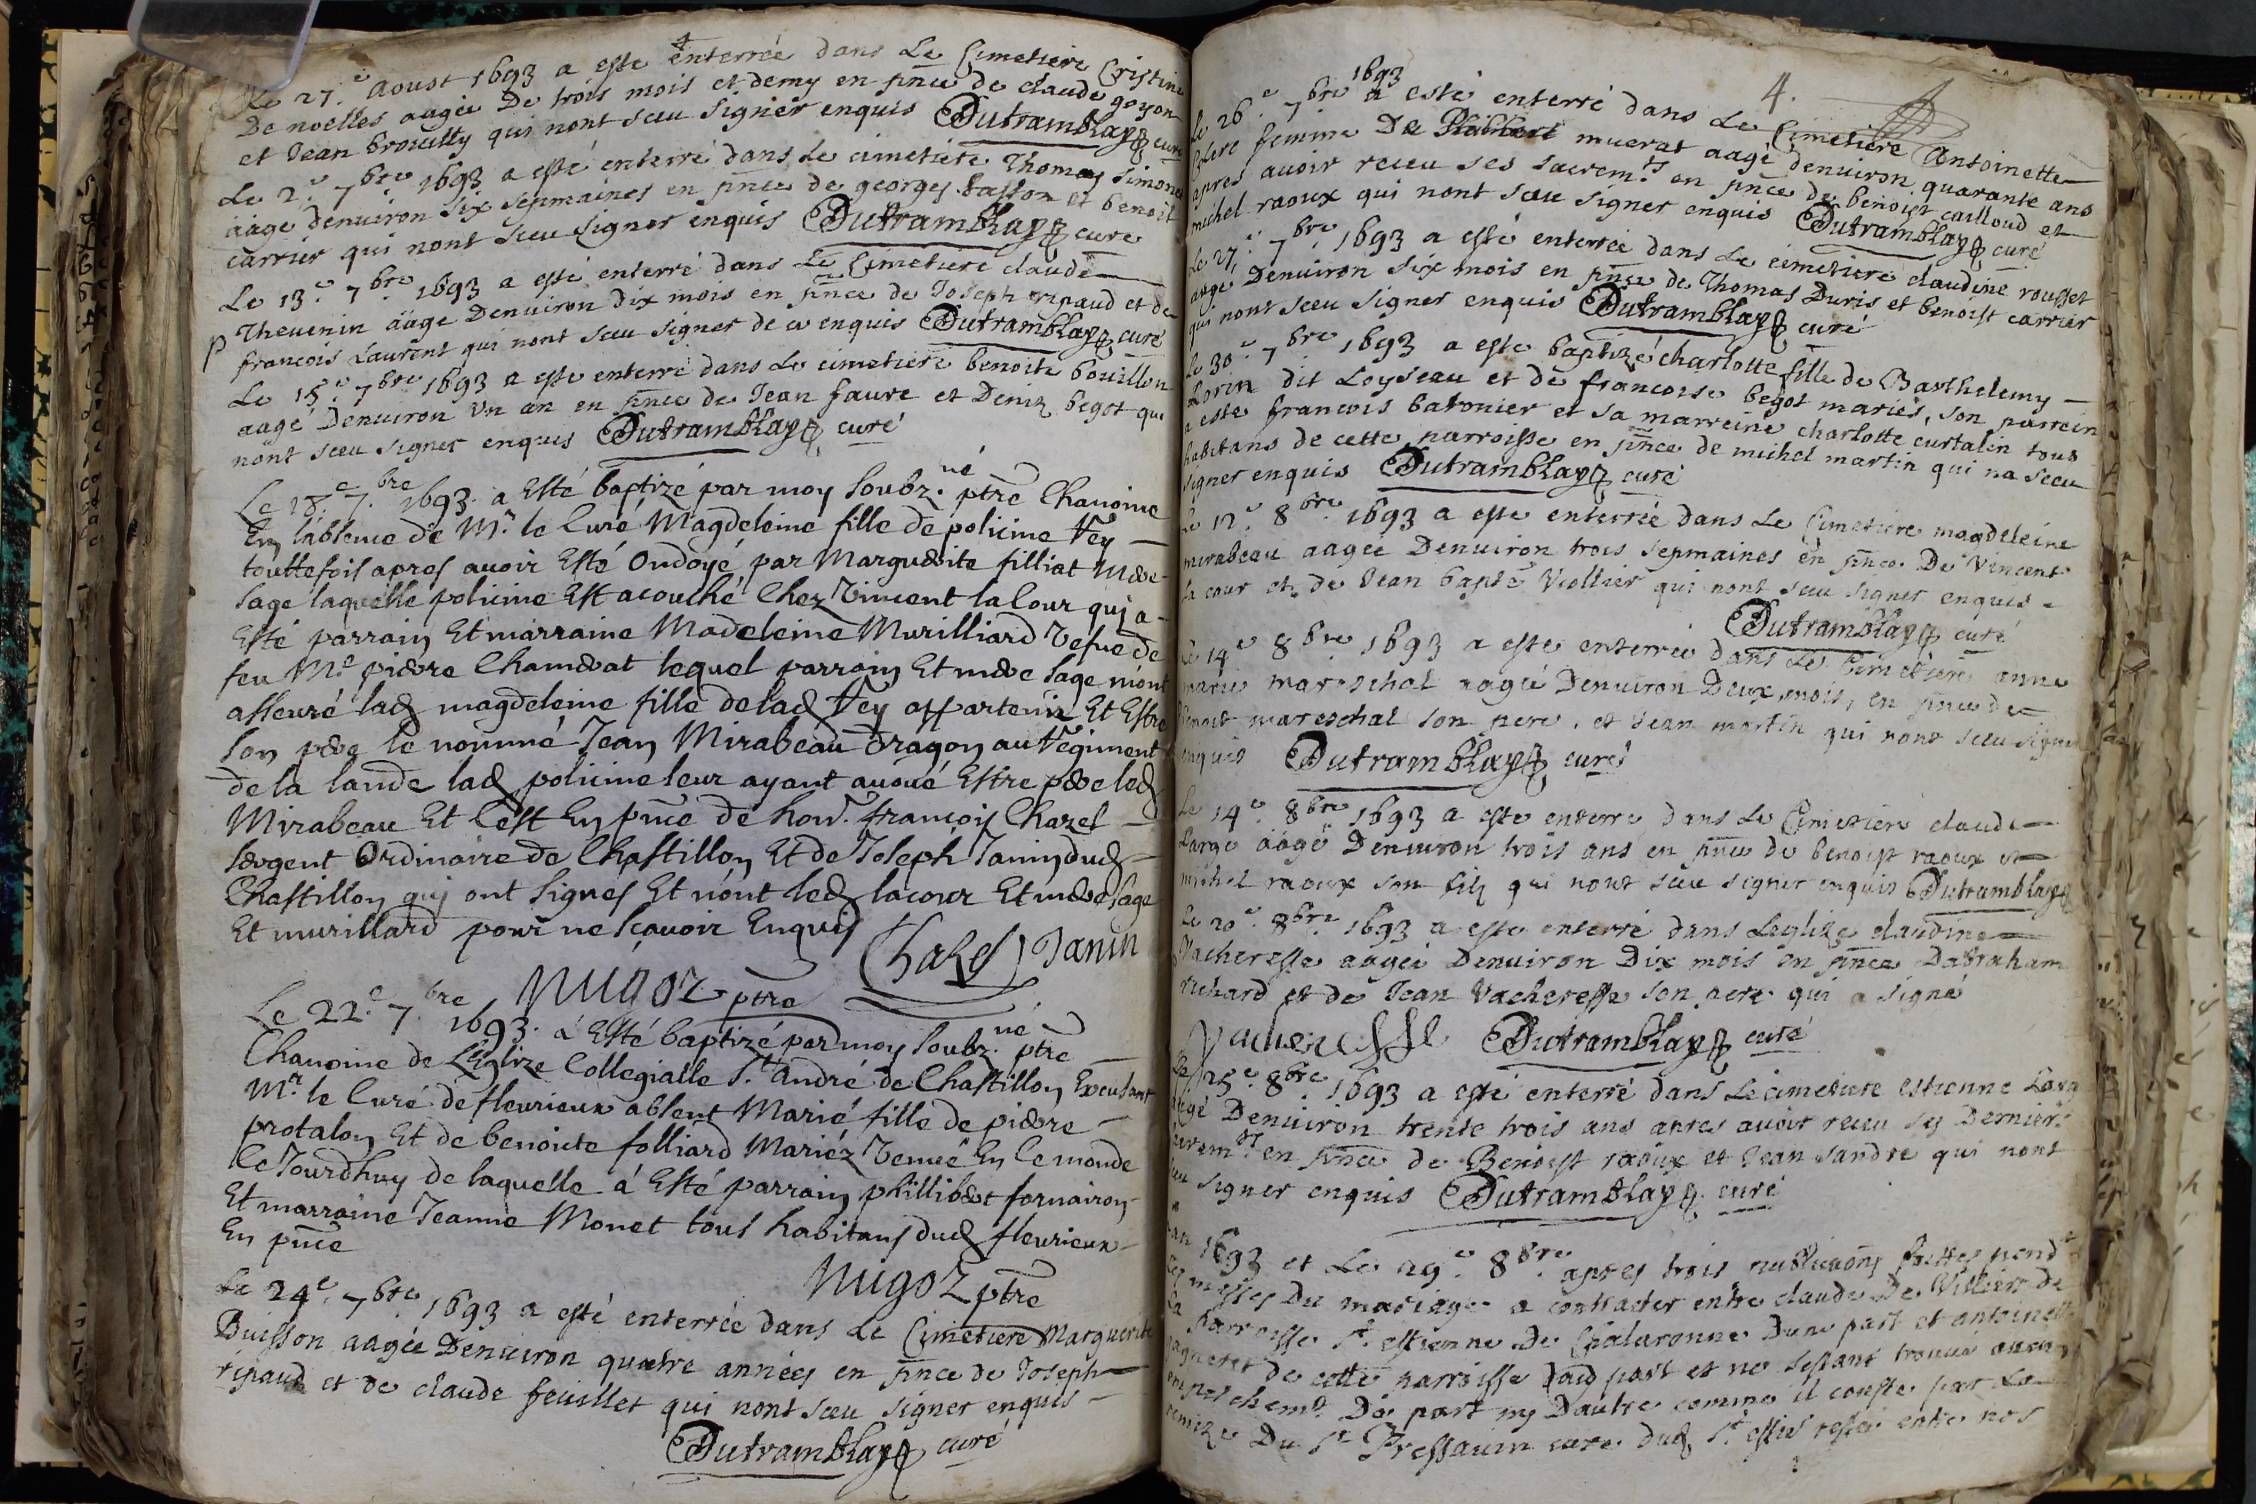 Le 27.e Aoust 1693 a esté enterrée dans Le Cimetiere Cristine
De noelles aagée De trois mois et demy en pn̄ce de claude goyon
et Jean brouilly qui nont sceu signer enquis Dutramblay curé
Le 2.e 7bre 1693 a esté enterré dans Le cimetiere Thomas simone
aagé denuiron six sepmaines en pn̄ce de georges basson et benoit
carrier qui nont sceu signer enquis Dutramblay curé
Le 13.e 7bre 1693 a esté enterré dans Le Cimetiere claude
p Thevenin aagé Denuiron dix mois en pn̄ce de Joseph ripaud et de
francois Laurent qui nont sceu signer de ce enquis Dutramblay curé
Le 15.e 7bre 1693 a esté enterré dans Le cimetiere benoite bouillon
aagé Denuiron vn an en pn̄ce de Jean faure et Deniz begot qui
nont sceu signer enquis Dutramblay curé
Le 18.e 7.bre 1693. a Esté baptizé par moy soubz.né ptrē Chanoine
En labsence de Mr. le Curé Magdeleine fille de policine Vey
touttefois apres auoir Esté Ondoyé par Marguerite filliat mere
sage laquelle policine Est acouché Chez Vincent la Cour qui a
Esté parrain Et marraine Madeleine Murilliard Vefue de
feu Me pierre Chamerat lequel parrain Et mere sage mont
asseuré lad magdeleine fille de lad Vey appartenir Et Estre
son pere le nommé Jean Mirabeau dragon au Regiment
de la lande lad policine leur ayant auoué Estre pere led
Mirabeau Et Cest En pn̄ce de hon. francois Chazel
sergent Ordinaire de Chastillon Et de Joseph Janin dud
Chastillon qui ont signes Et nont led lacour Et mere sage
Et murillard pour ne scauoir Enquis Chazel Janin
Nugoz ptre
Le 22.e 7bre 1693. a Esté baptizé par moy soubz.né ptrē
Chanoine de LEglize Collegialle St. André de Chastillon Excusant
Mr. le Curé de fleurieux absent Marie fille de pierre
protalon Et de benoiste folliard Mariéz Venue En le monde
Ce Jourdhuy de laquelle á Esté parrain phillibert fornairon
Et marraine Jeanne Monet tous habitans dud fleurieux
En pn̄ce
Nugoz ptrē
Le 24.e 7bre 1693 a esté enterrée dans Le Cimetiere Marguerite
Buisson aagée Denuiron quatre années en pn̄ce de Joseph
ripaud et de claude feuillet qui nont sceu signer enquis
Dutramblay curé
4.
Le 26.e 7bre 1693 a esté enterré dans Le Cimetiere Antoinette
Clere femme De muerat aagé denuiron quarante ans
apres auoir receu ses sacrem.ts en pn̄ce de benoist cailloud et
michel raoux qui nont sceu signer enquis Dutramblay curé
Le 27.e 7bre 1693 a esté enterrée dans Le cimetiere claudine rousset
aagé Denuiron six mois en pn̄ce de Thomas Duris et benoist carrier
qui nont sceu signer enquis Dutramblay curé
Le 30.e 7bre 1693 a esté baptizé charlotte fille de Barthelemy
Lorin dit Loyseau et de francoise begot mariés, son parrein
a esté francois batonier et sa marreine charlotte curtalin tous
habitans de cette parroisse en pn̄ce de michel martin qui na sceu
signer enquis Dutramblay curé
Le 12.e 8bre 1693 a esté enterrée dans Le Cimetiere magdeleine
mirabeau aagée Denuiron trois sepmaines en pn̄ce De Vincent
La cour et de Jean bapte Viollier qui nont sceu signer enquis
Dutramblay curé
Le 14.e 8bre 1693 a esté enterrée dans Le Cimetiere anne
marie mareschal aagée Denuiron Deux mois, en pn̄ce de
benoit mareschal son pere, et Jean martin qui nont sceu signer
enquis Dutramblay curé
Le 14.e 8bre 1693 a esté enterré dans Le Cimetiere claude
Large aagé Denuiron trois ans en pn̄ce de benoist raoux et
michel raoux son filz qui nont sceu signer enquis Dutramblay
Le 20.e 8bre 1693 a esté enterré dans Leglize claudine
Vacheresse aagée Denuiron Dix mois en pn̄ce Dabraham
richard et de Jean Vacheresse son pere qui a signé
Vacheresse Dutramblay curé
Le 25.e 8bre 1693 a esté enterré dans Le cimetiere estienne Larg
aagé Denuiron trente trois ans apres auoir receu ses Derniers
sacrem.ts en pn̄ce de Benoist raoux et Jean sandre qui nont
sceu signer enquis Dutramblay curé
Lan 1693 et Le 29.e 8bre apres trois publications faittes pendt
Les messes Du mariage a contracter entre claude De Villier de
La parroisse St estienne De Chalaronne Dune part et antoinette
de cette parroisse Daud part et ne sestant trouué aucun
empeschemt De part ny Dautre comme il conste par La
remize Du Sr Fressauin curé dud St estie restée entre nos